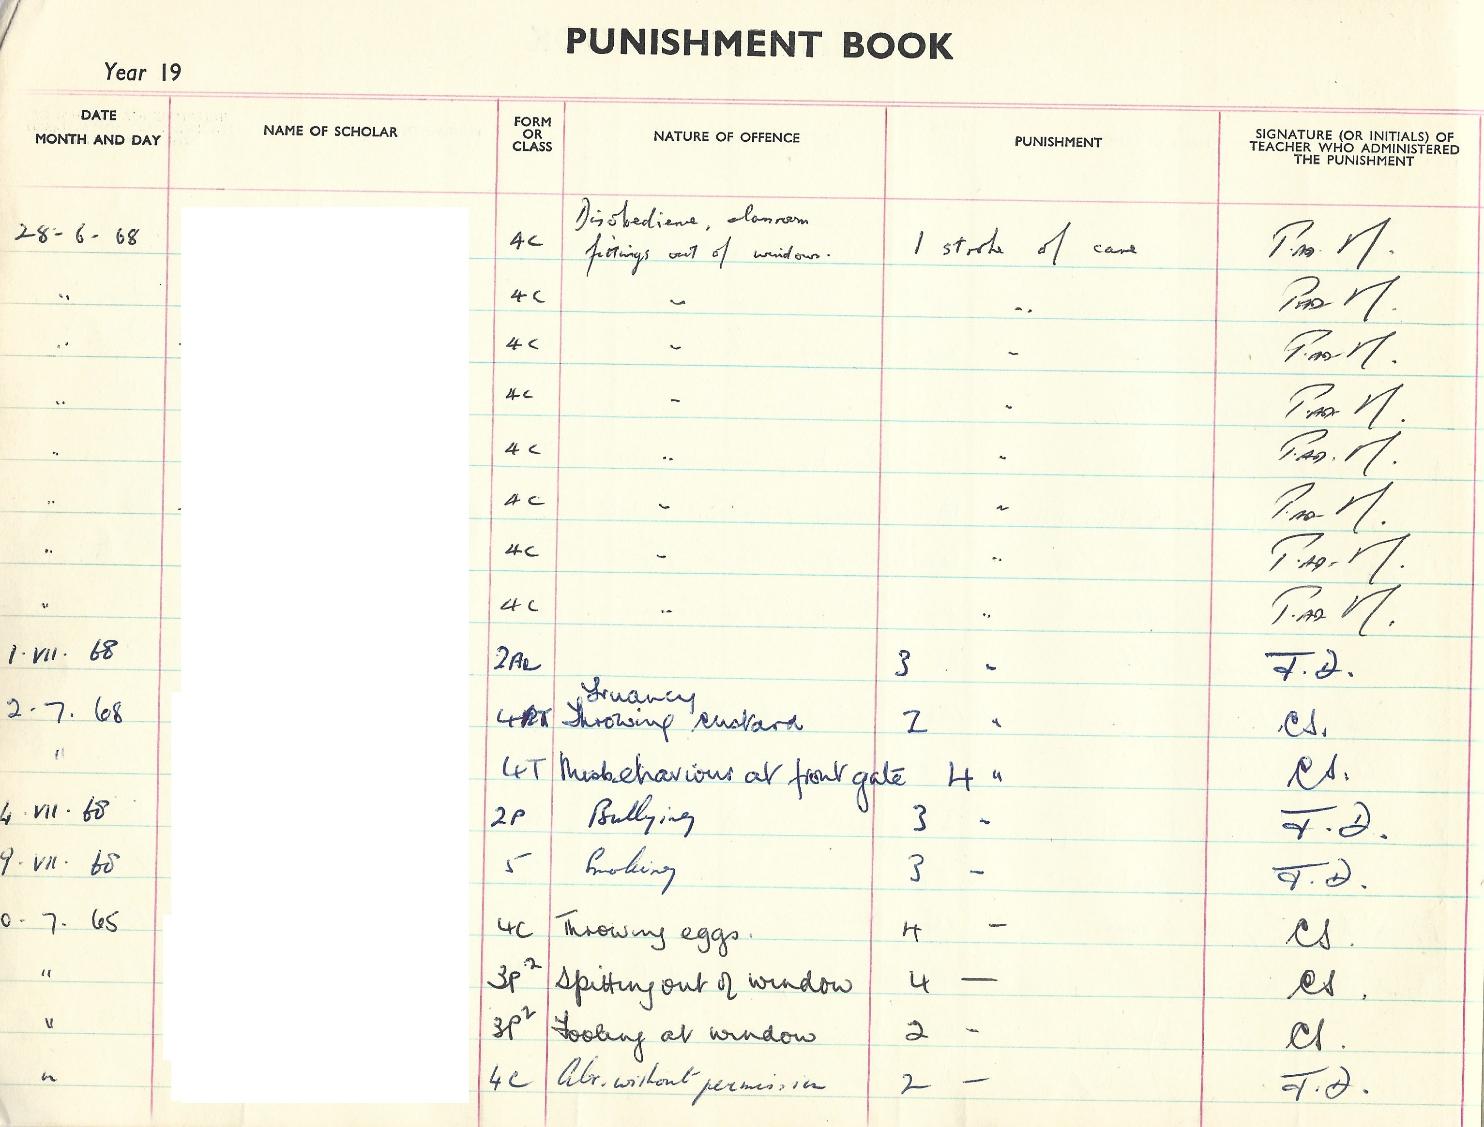 PUNISHMENT BOOK
Year 19
DATE MONTH AND DAY NAME OF SCHOLAR FORM OR CLASS NATURE OF OFFENCE PUNISHMENT SIGNATURE (OR INITIALS) OF TEACHER WHO ADMINISTERED THE PUNISHMENT
Disobedience, classroom
28-6-68 4C fittings out of window. 1 stroke of cane
" 4C " "
" 4C " "
" 4C " "
" 4C " "
" 4C " "
" 4C " "
" 4C " "
1. VII. 68 3 " F.D.
Truancy
2-7.68 Throwing custard 2 " CS.
" 4T Misbehaviour at front gate 4 " CS.
4. VII. 68 2P Bullying 3 " F.D.
9. VII. 68 5 Smoking 3 " F.D.
0-7.65 4C Throwing eggs. 4 - CS.
" 3P² Spitting out of window 4 — CS.
" 3P² Fooling at window 2 - CS.
" 4C Abs. without permission 2 - F.D.